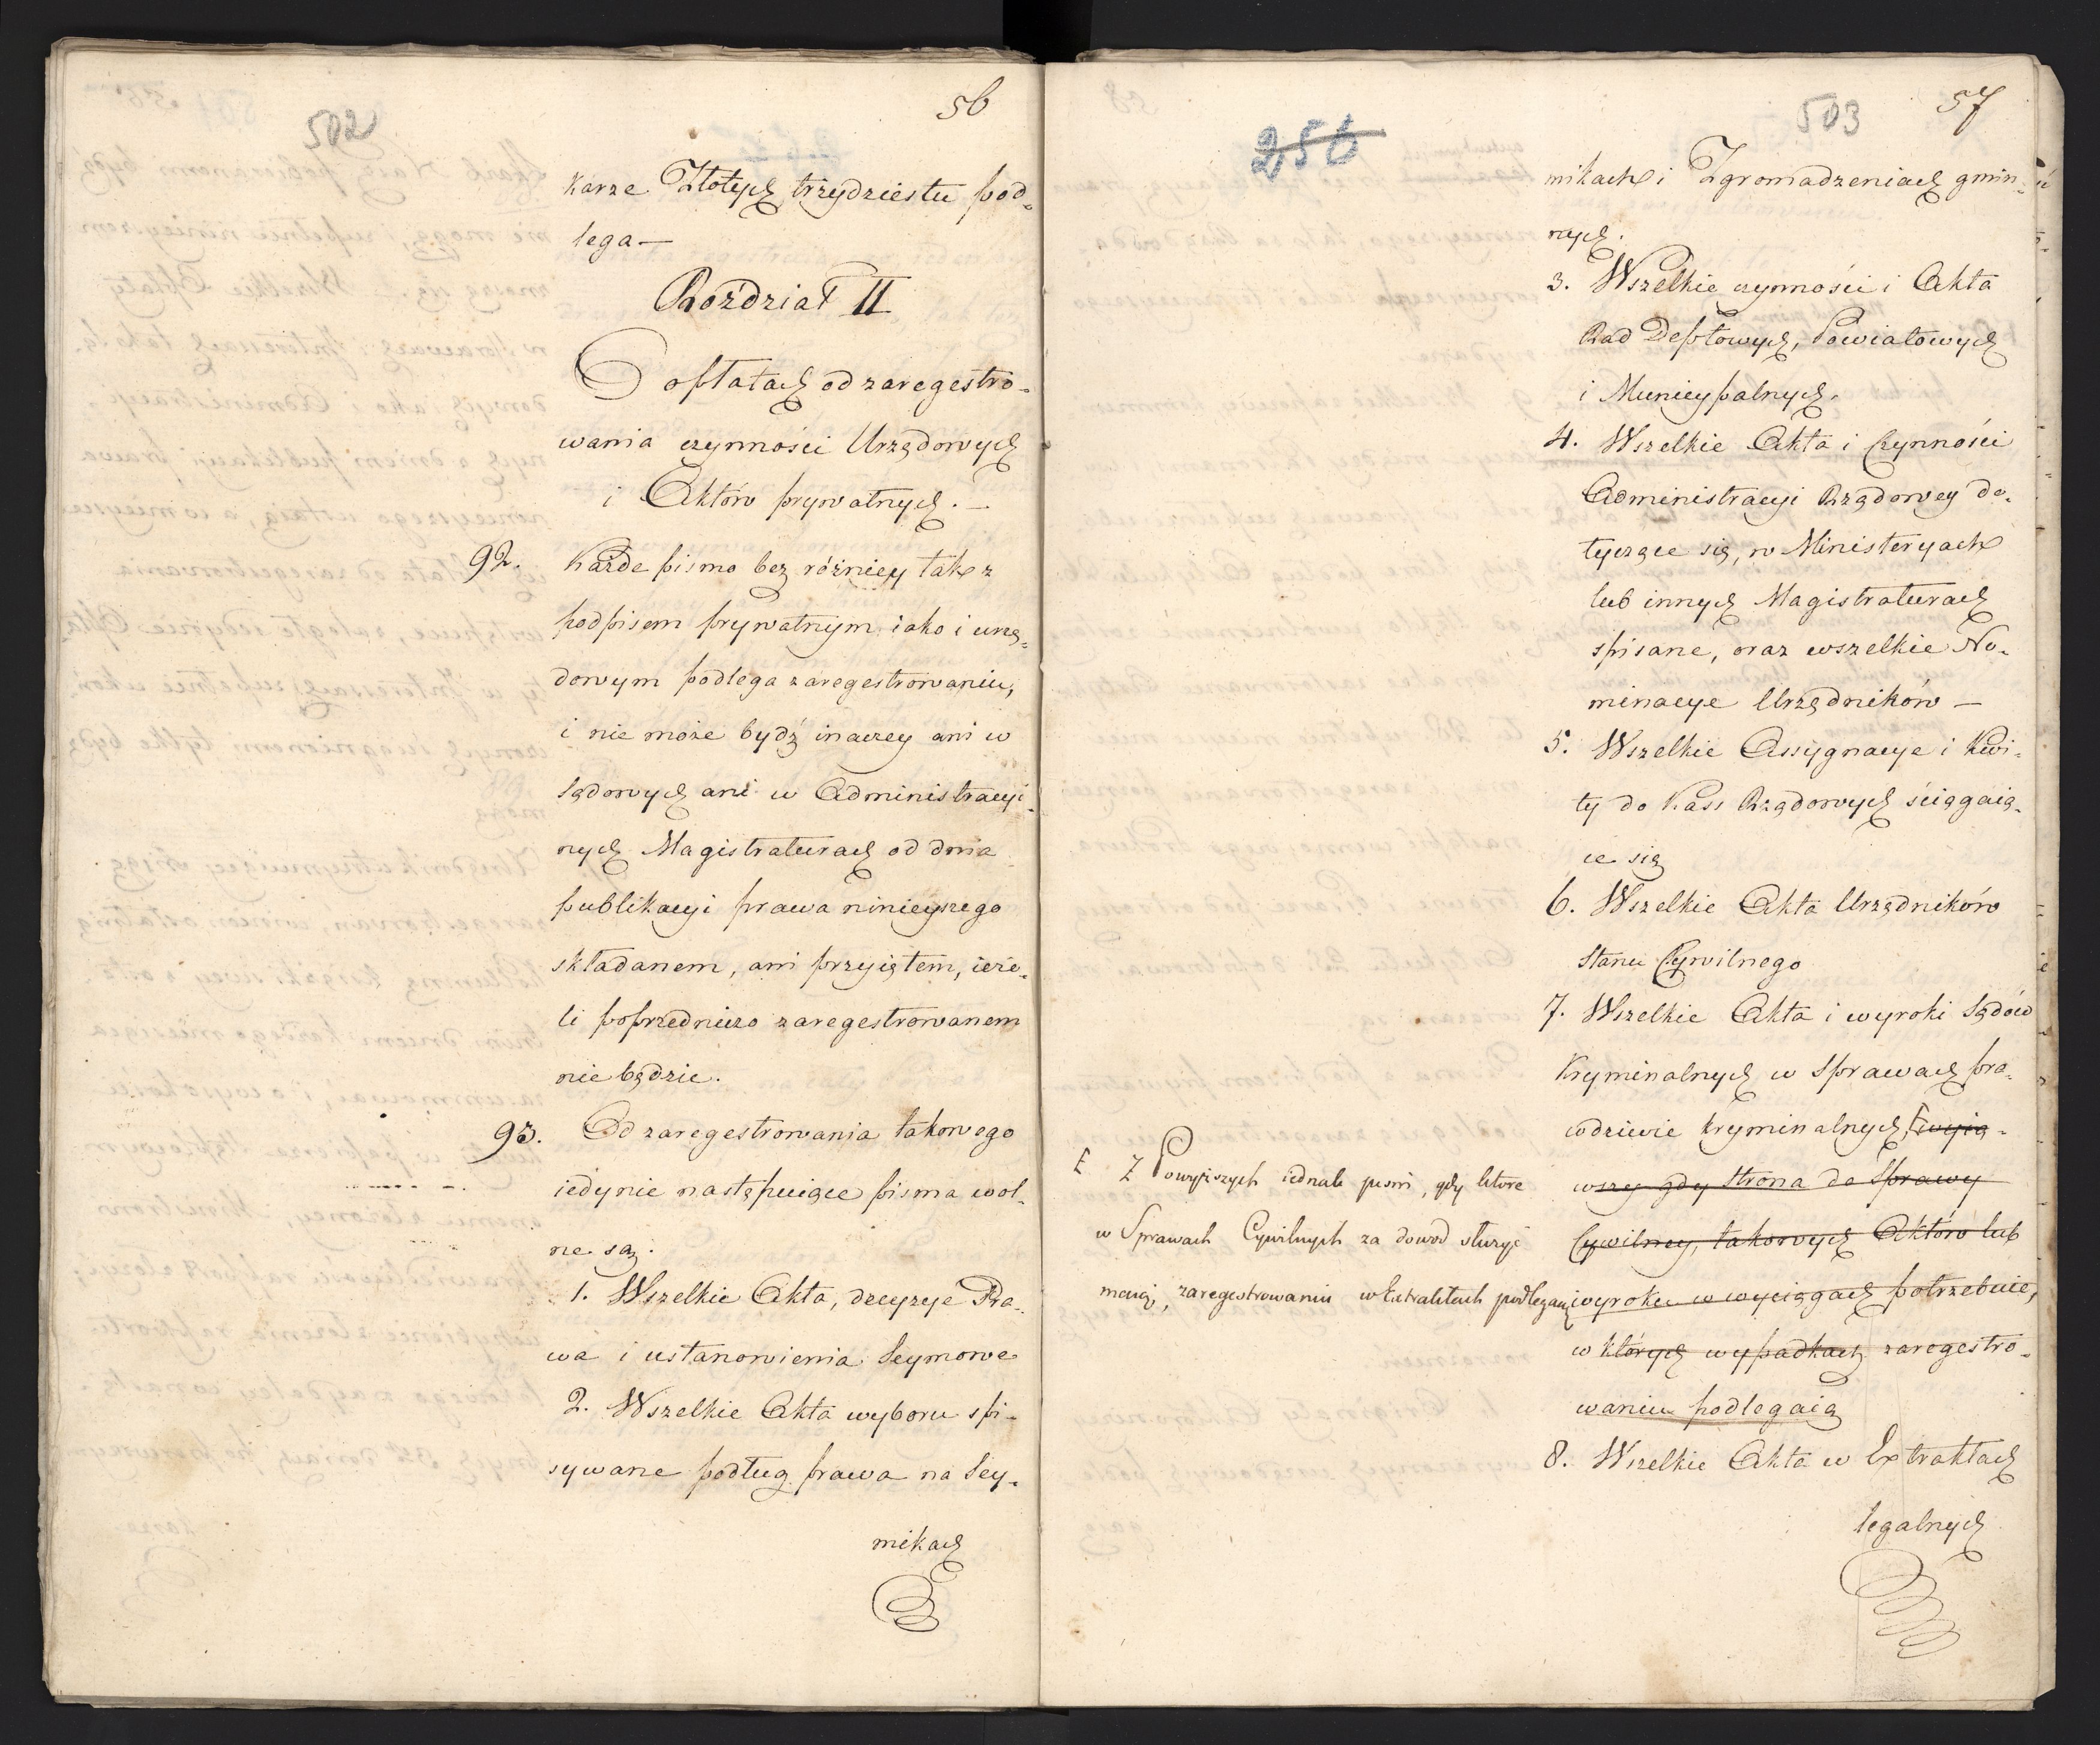 502
56
karze Złotych trzydziestu pod-
lega —
Rozdział II
O opłatach od zaregestro-
wania czynności Urzędowych
i Aktów prywatnych. —
92. Każde pismo bez różnicy tak z
podpisem prywatnym iako i urzę-
dowym podlega zaregestrowaniu,
i nie może bydź inaczey ani w
sądowych ani w Administracyi-
nych Magistraturach od dnia
publikacyi prawa ninieyszego
składanem, ani przyiętem, ieże-
li poprzedniczo zaregestrowanem
nie będzie.
93. Od zaregestrowania takowego
iedynie następuiące pisma wol-
ne są.
1. Wszelkie Akta, decyzye Pra-
wa i ustanowienia Seymowe
2. Wszelkie Akta wyboru spi-
sywane podług prawa na Sey-
mikach
256
503
57
mikach i Zgromadzeniach gmin-
nych.
3. Wszelkie czynności i Akta
Rad Depłowych, Powiatowych
i Municypalnych.
4. Wszelkie Akta i Czynności
Administracyi Rządowey do-
tyczące się, w Ministeryach
lub innych Magistraturach
spisane, oraz wszelkie No-
minacye Urzędników —
5. Wszelkie Assygnacye i Kwi-
ty do Kass Rządowych ściągaią-
ce się
6. Wszelkie Akta Urzędników
Stanu Cywilnego
7. Wszelkie Akta i wyroki Sądów
Kryminalnych w Sprawach pra-
wdziwie kryminalnych, wyią-
wszy gdy Strona do Sprawy
Cywilney, takowych Aktów lub
wyroku w wyciągach potrzebuie,
w których wypadkach zaregestro-
waniu podlegaią
Z Powyższych iednak pism, gdy które
w Sprawach Cywilnych za dowod służyć
maią, zaregestrowaniu w Extraktach podlegaią
8. Wszelkie Akta w Extraktach
legalnych